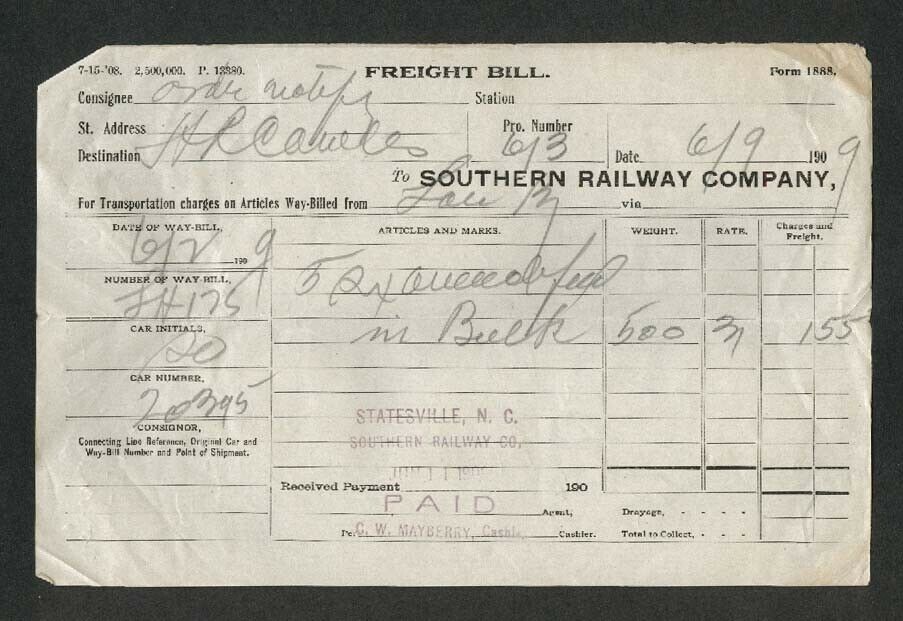 7-15-'08. 2,500,000. P. 13380. FREIGHT BILL. Form 1888.
Consignee order notify Station
St. Address Pro. Number
Destination H R Cowles 6/3 Date 6/9 1909
To SOUTHERN RAILWAY COMPANY,
For Transportation charges on Articles Way-Billed from via
DATE OF WAY-BILL, ARTICLES AND MARKS. WEIGHT. RATE. Charges and Freight.
6/2 1909
NUMBER OF WAY-BILL, 5
175
CAR INITIALS, in Bulk 500 31 155
SO
CAR NUMBER,
20395
CONSIGNOR, STATESVILLE, N. C.
Connecting Line Reference, Original Car and SOUTHERN RAILWAY CO,
Way-Bill Number and Point of Shipment.
Received Payment 190
PAID Agent, Drayage, - - - -
Per C. W. MAYBERRY, Cashier Cashier. Total to Collect, - - -